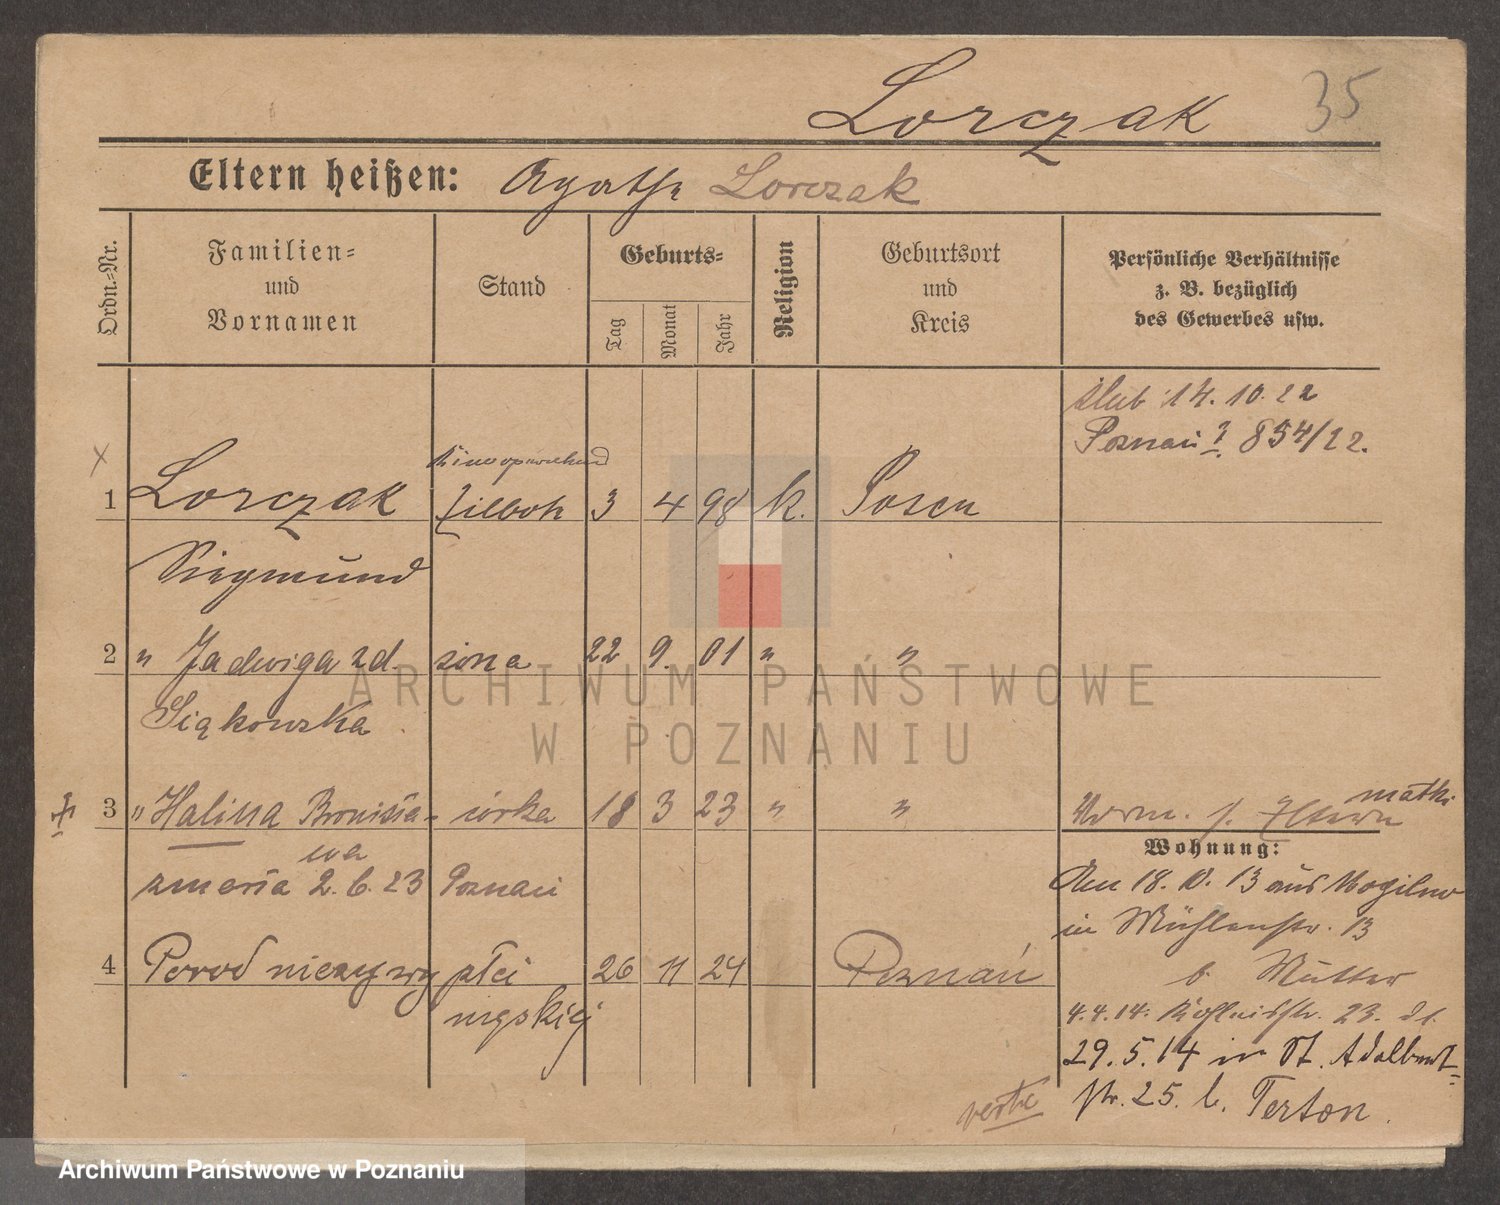 Lorczak 35
Eltern heißen: Agathe Lorczak
Ordn.-Nr.
Familien= und Vornamen
Stand
Geburts=
Tag
Monat
Jahr
Religion
Geburtsort und Kreis
Persönliche Verhältnisse
z. B. bezüglich
des Gewerbes usw.
ślub 14. 10. 22
Poznań 854/22.
1 Lorczak 3 4 98 k. Posen
Siegmund
2 " Jadwiga zd. żona 22 9. 01 " "
Siąkowska
3 " Halina Bronisła- córka 18 3 23 " "
wa
matki
Norm. s. Eltern
zmarła 2.6.23 Poznań
Wohnung:
Am 18. 10. 13 aus Mogilno
in Mühlenstr. 13
b. Mutter
4 Poród nieżywy płci 26 11 24 Poznań
męskiej
4.4.14. 23.
29.5.14 in St. Adalbert-
str. 25. b. Terton.
verte
ARCHIWUM PAŃSTWOWE
W POZNANIU
Archiwum Państwowe w Poznaniu